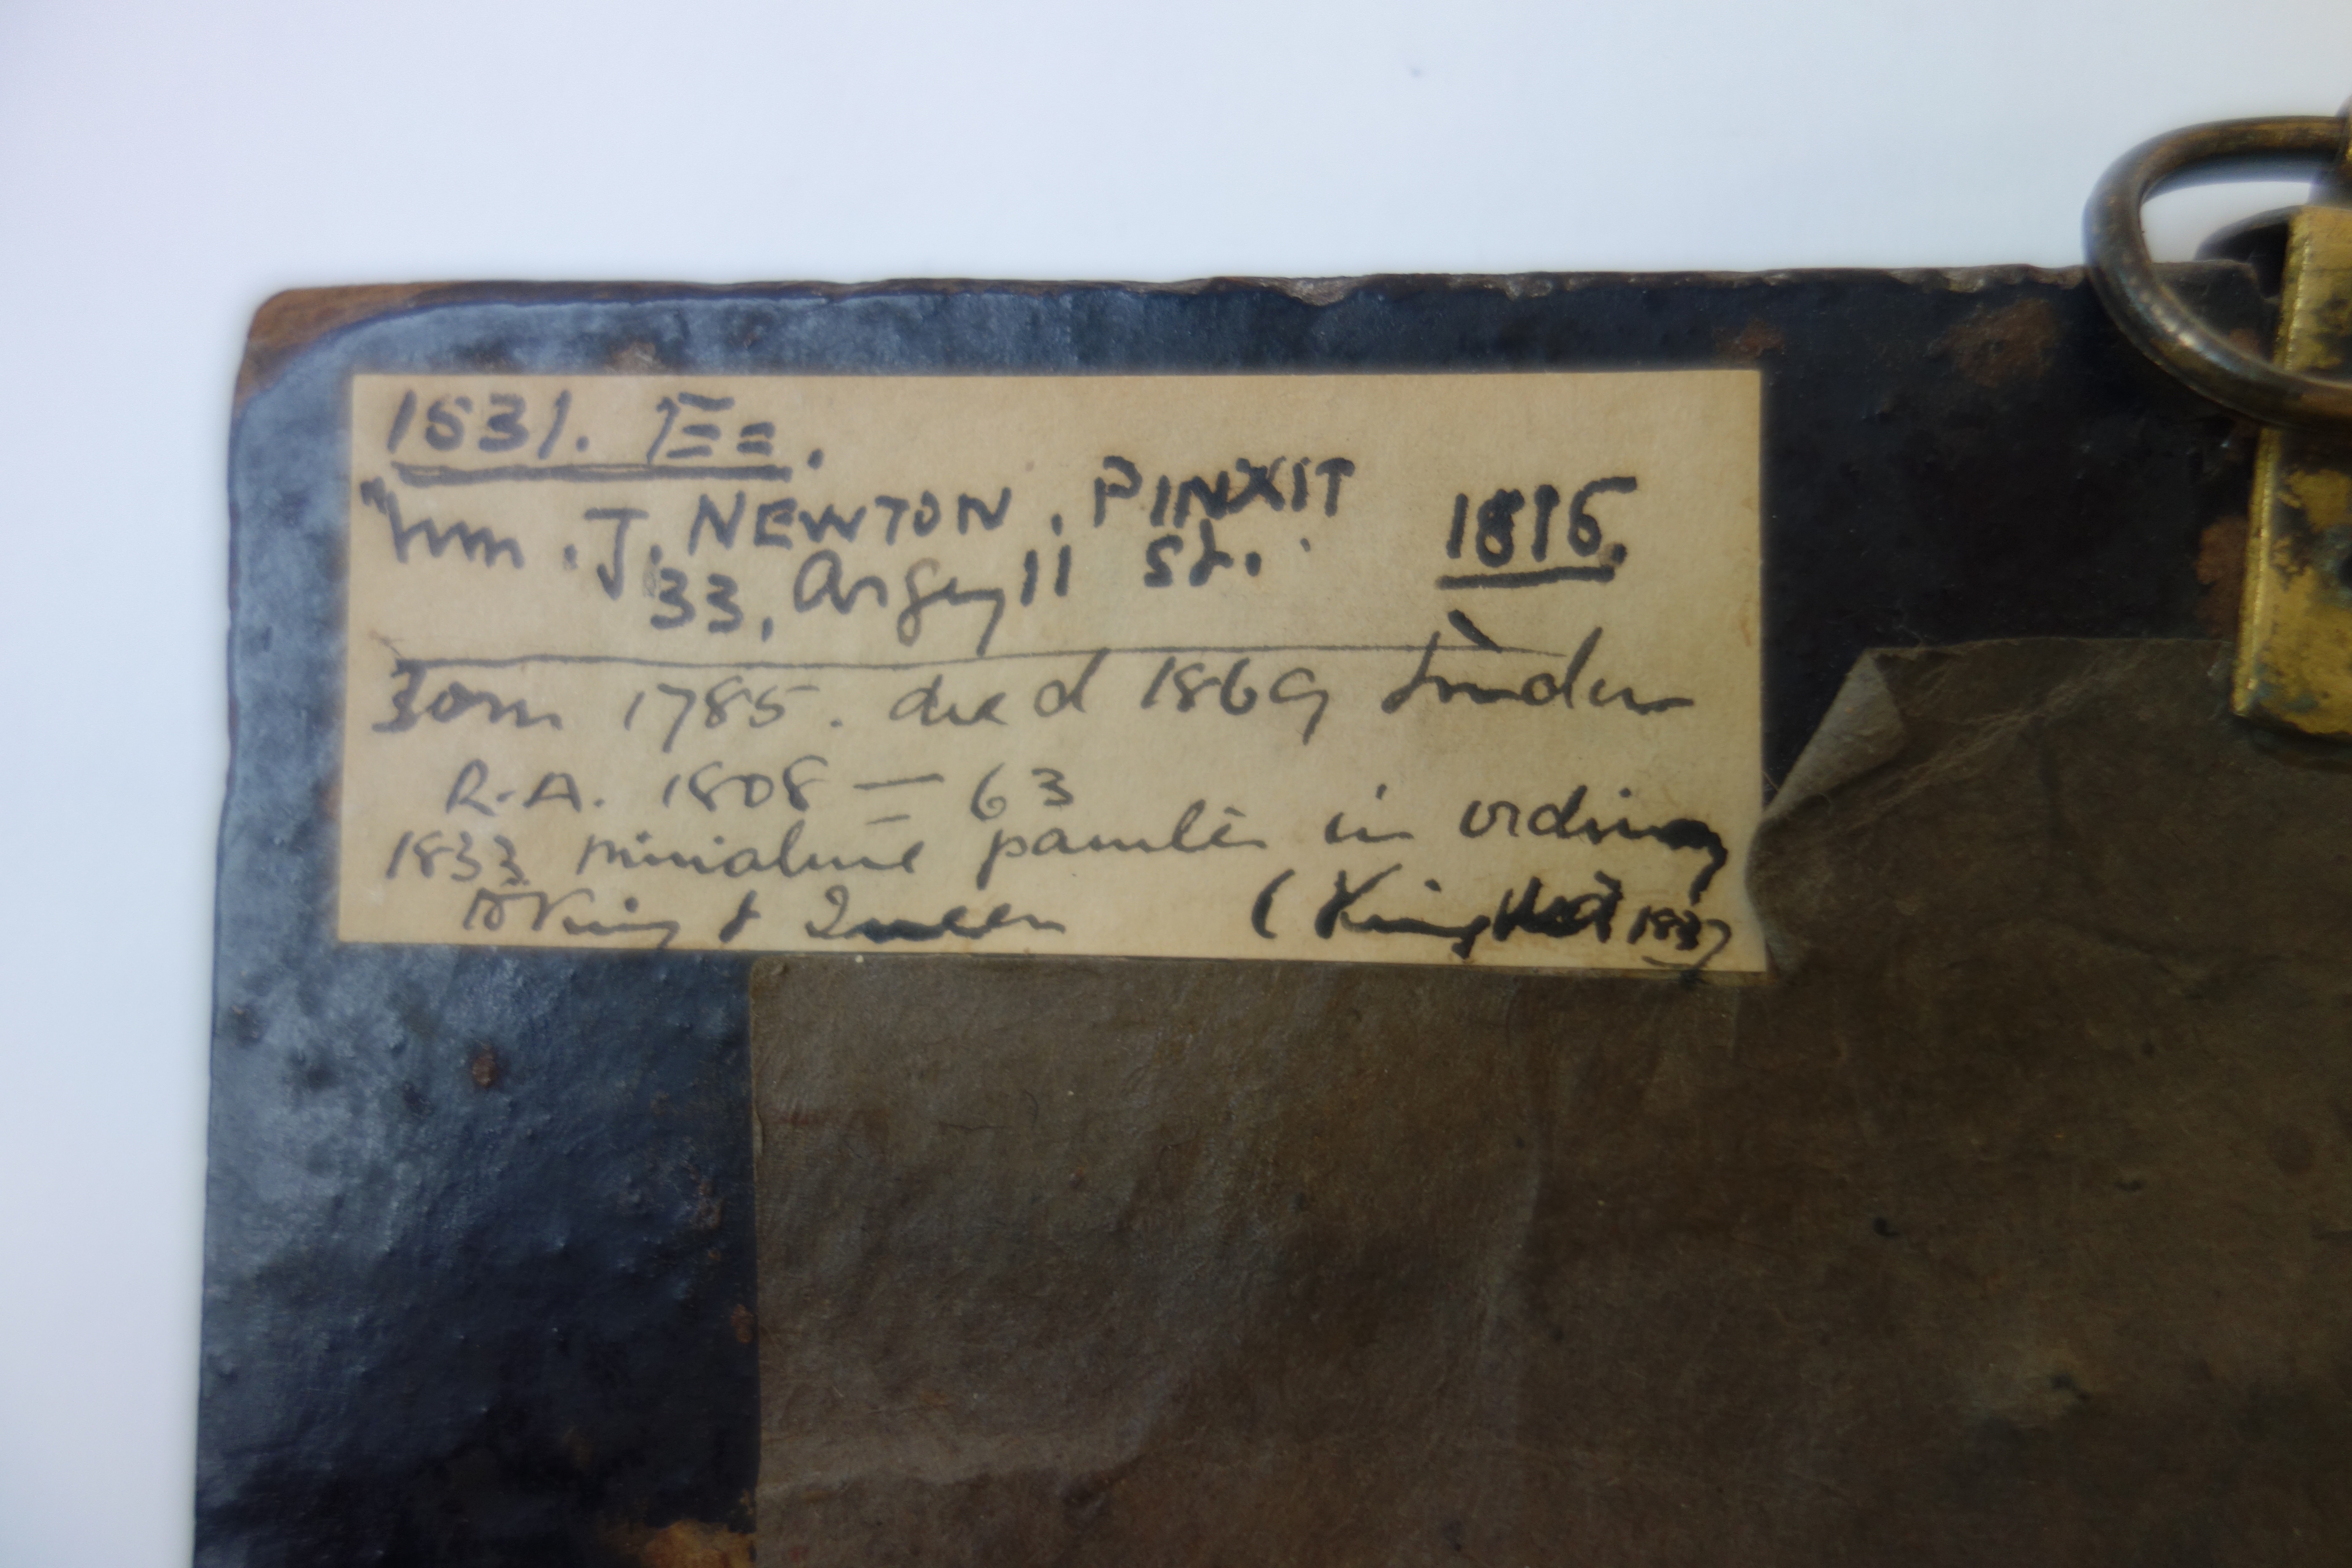 1831.
Wm. J. NEWTON. PINXIT 1816.
33, Argyll St.
Born 1785. died 1869 London
R.A. 1808 — 63
1833 miniature painter in ordinary
to King & Queen (King died 1837)